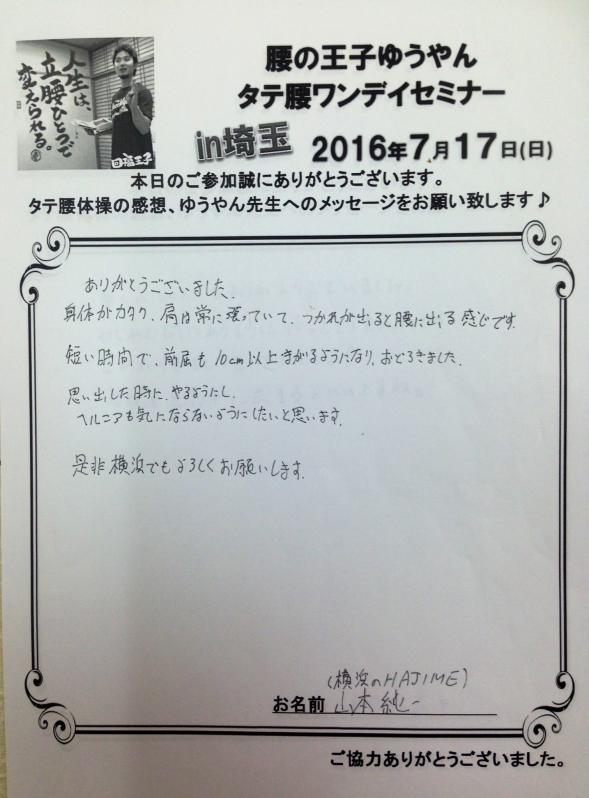 人生は、
立腰ひとつで
変えられる。
腰の王子ゆうやん
タテ腰ワンデイセミナー
in埼玉 2016年7月17日(日)
本日のご参加誠にありがとうございます。
タテ腰体操の感想、ゆうやん先生へのメッセージをお願い致します♪
ありがとうございました。
身体がカタク、肩は常に張っていて、つかれが出ると腰に出る感じです。
短い時間で、前屈も10cm以上まがるようになり、おどろきました。
思い出した時に、やるようにし、
ヘルニアも気にならないようにしたいと思います。
是非横浜でもよろしくお願いします。
(横浜のHAJIME)
お名前 山本純一
ご協力ありがとうございました。